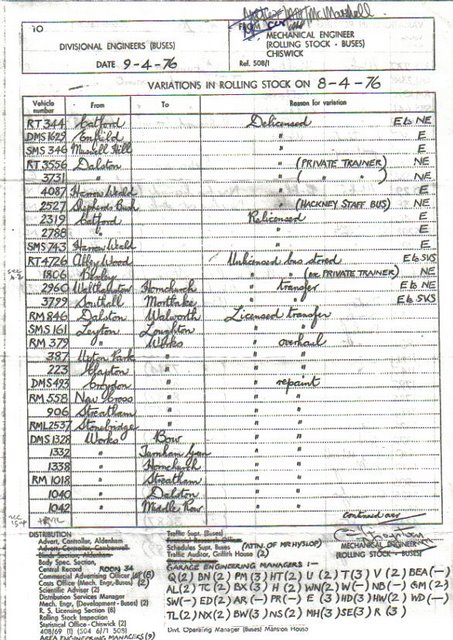 Mr Marshall
TO
FROM
DIVISIONAL ENGINEERS (BUSES)
MECHANICAL ENGINEER
(ROLLING STOCK - BUSES)
CHISWICK
DATE 9-4-76
Ref. 508/1
VARIATIONS IN ROLLING STOCK ON 8-4-76
Vehicle number From To Reason for variation
RT 344 Catford Delicensed E to NE
DMS 1629 Enfield " E
SMS 346 Muswell Hill " E
RT 3556 Dalston " (PRIVATE TRAINER) NE
3731 " " ( " " ) NE
4087 Harrow Weald " E
2527 Shepherds Bush " (HACKNEY STAFF BUS) NE
2319 Catford Relicensed E
2788 " " E
SMS 743 Harrow Weald " E
RT 4726 Abbey Wood Unlicensed bus stored E to SVS
1806 Bexley " " (ex PRIVATE TRAINER) NE
2960 Walthamstow Hornchurch " transfer E to NE
3799 Southall Mortlake " " E to SVS
RM 846 Dalston Walworth Licensed transfer
SMS 161 Leyton Loughton " "
RM 379 " Works " overhaul
387 Upton Park " " "
223 Clapton " " "
DMS 493 Croydon " " repaint
RM 558 New Cross " " "
906 Streatham " " "
RML 2537 Stonebridge " " "
DMS 1328 Works Bow " "
1332 " Turnham Green " "
1338 " Hornchurch " "
RM 1018 " Streatham " "
1040 " Dalston " "
1042 " Middle Row " "
continued over
MECHANICAL ENGINEER
(ROLLING STOCK - BUSES)
DISTRIBUTION
Advert. Controller, Aldenham
Body Spec. Section,
Central Record ROOM 34
Commercial Advertising Officer (8)
Costs Office (Mech. Eng.Buses) (2)
Scientific Adviser (2)
Distribution Services Manager
Mech. Engr. (Development - Buses) (2)
R. S. Licensing Section (6)
Rolling Stock Office (2)
Statistical Office - Chiswick (2)
AREA ENGINEERING MANAGERS (9)
Traffic Supt. (Buses)
Schedules Supt. Buses (ATTN. OF MR HYSLOP)
Traffic Auditor, Griffith House (2)
GARAGE ENGINEERING MANAGERS :-
Q (2) BN (2) PM (3) HT (2) U (2) T (3) V (2) BEA (-)
AL (2) TC (2) BX (3) H (2) WN (2) W (-) NB (-) GM (2)
SW (-) ED (2) AR (-) PR (-) E (3) HD (3) HW (2) WD (-)
TL (2) NX (2) BW (3) NS (2) MH (3) SE (3) R (3)
Divl. Operating Manager (Buses) Mansion House